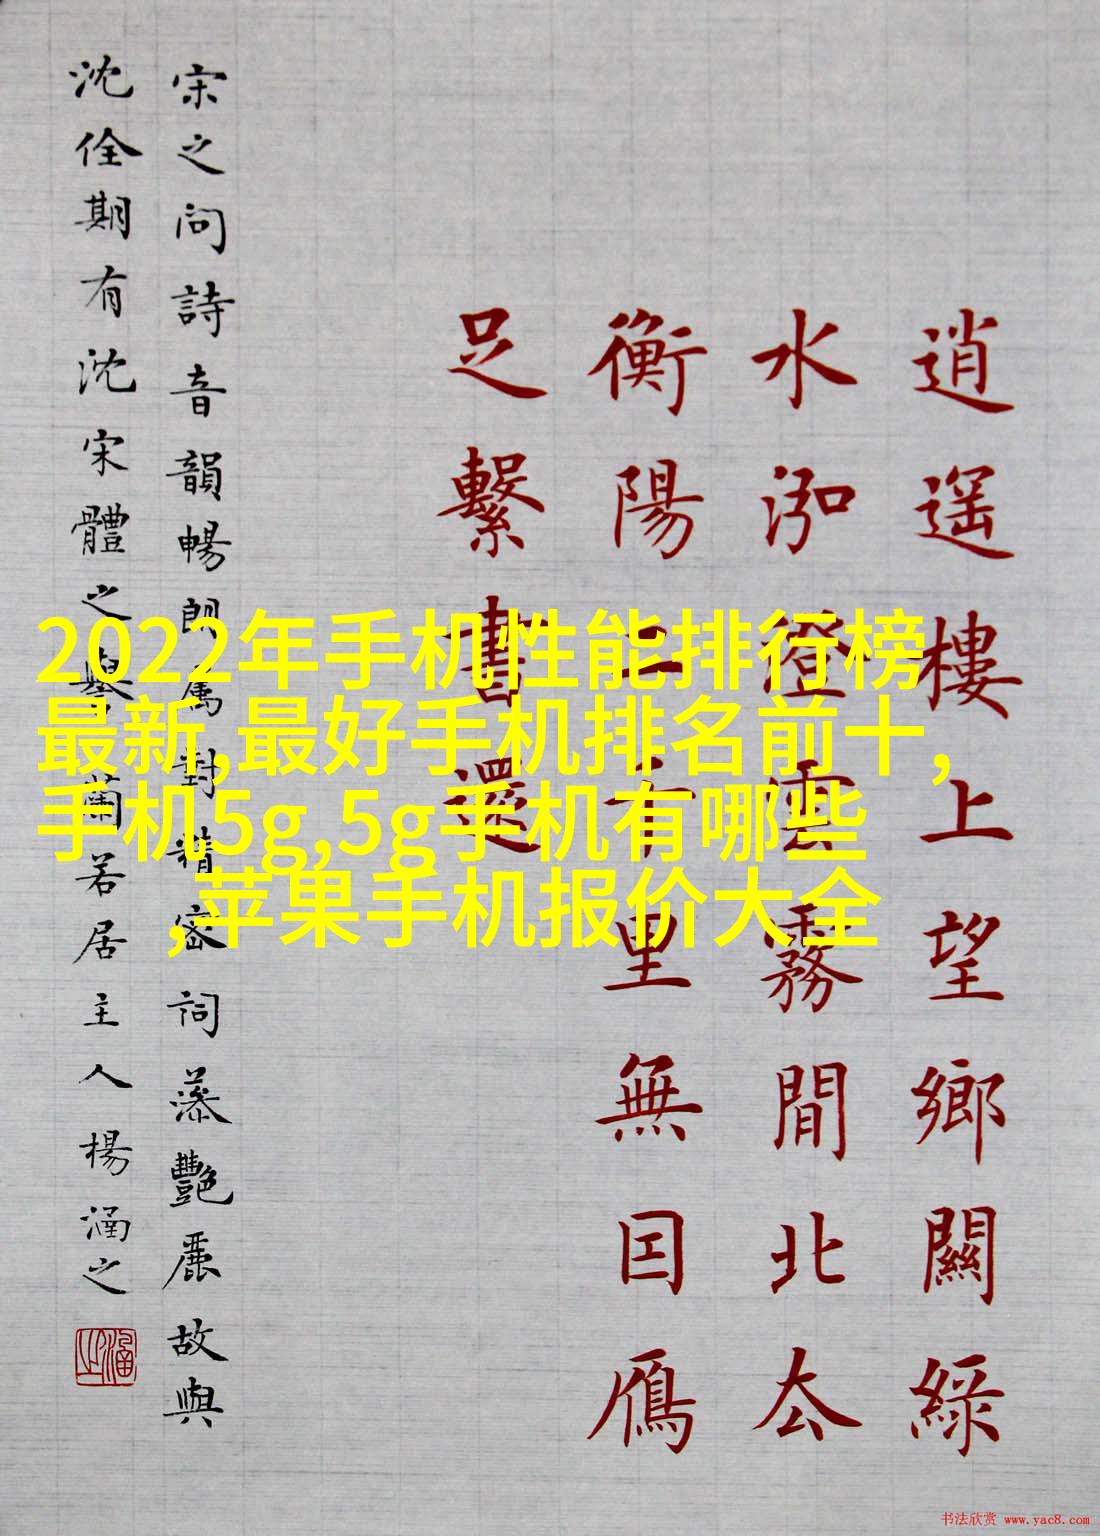 2022年手机性能排行榜
最新,最好手机排名前十,
手机5g,5g手机有哪些
,苹果手机报价大全
逍遥樓上望鄉關綠
水泓澄雲霧間北去
衡陽二千里無囙鴈
足繫書還
宋之問詩音韻暢朗属對精密詞藻艷麗故與
沈佺期有沈宋體之譽蘭若居主人楊涵之
书法欣赏 www.yac8.com